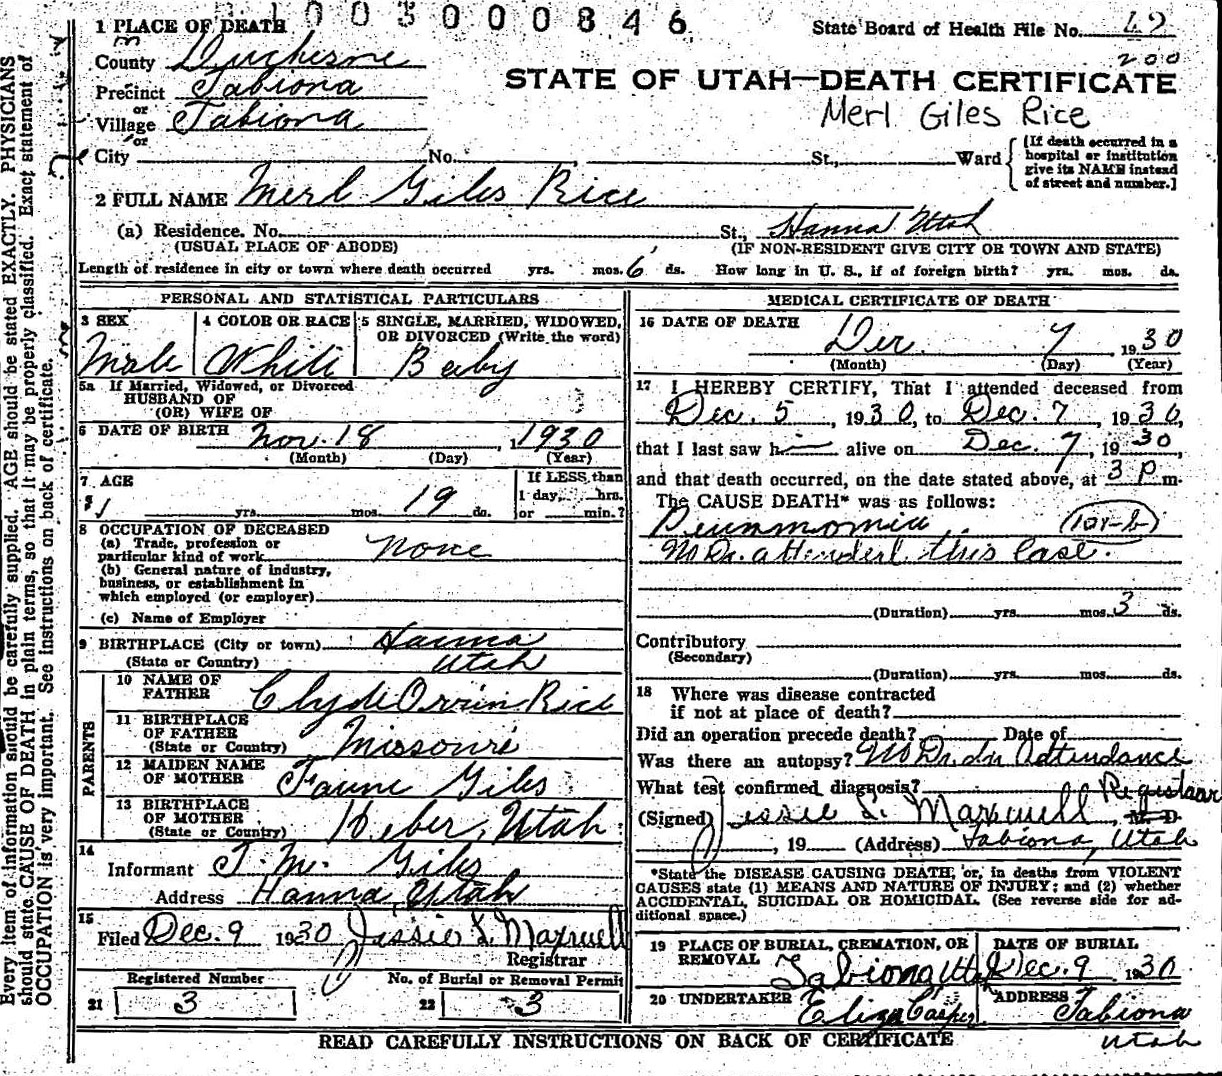 1003000846
State Board of Health File No. 42
200
1 PLACE OF DEATH
County Duchesne
STATE OF UTAH—DEATH CERTIFICATE
Precinct Tabiona
or
Village Tabiona
Merl Giles Rice
or
City No. , St., Ward
[If death occurred in a
hospital or institution
give its NAME instead
of street and number.]
2 FULL NAME Merl Giles Rice
(a) Residence. No. St., Hanna Utah
(USUAL PLACE OF ABODE) (IF NON-RESIDENT GIVE CITY OR TOWN AND STATE)
Length of residence in city or town where death occurred yrs. mos. 6 ds. How long in U. S., if of foreign birth? yrs. mos. ds.
PERSONAL AND STATISTICAL PARTICULARS
3 SEX 4 COLOR OR RACE 5 SINGLE, MARRIED, WIDOWED,
OR DIVORCED (Write the word)
Male White Baby
5a If Married, Widowed, or Divorced
HUSBAND OF
(OR) WIFE OF
6 DATE OF BIRTH Nov. 18, 1930
(Month) (Day) (Year)
7 AGE If LESS than
yrs. mos. 19 ds. 1 day, hrs.
or min.?
8 OCCUPATION OF DECEASED
(a) Trade, profession or
particular kind of work None
(b) General nature of industry,
business, or establishment in
which employed (or employer)
(c) Name of Employer
9 BIRTHPLACE (City or town) Hanna
(State or Country) Utah
PARENTS
10 NAME OF
FATHER Clyde Orrin Rice
11 BIRTHPLACE
OF FATHER
(State or Country) Missouri
12 MAIDEN NAME
OF MOTHER Faune Giles
13 BIRTHPLACE
OF MOTHER
(State or Country) Heber, Utah
14
Informant J. M. Giles
Address Hanna, Utah
15
Filed Dec. 9 1930 Jessie L. Maxwell
Registrar
Registered Number No. of Burial or Removal Permit
21 3 22 3
MEDICAL CERTIFICATE OF DEATH
16 DATE OF DEATH
Dec. 7, 1930
(Month) (Day) (Year)
17 I HEREBY CERTIFY, That I attended deceased from
Dec. 5, 1930, to Dec. 7, 1930,
that I last saw h— alive on Dec. 7, 1930,
and that death occurred, on the date stated above, at 3 P m.
The CAUSE DEATH* was as follows:
Peunmomia
No Dr. attended this case.
(Duration) yrs. mos. 3 ds.
Contributory
(Secondary)
(Duration) yrs. mos. ds.
18 Where was disease contracted
if not at place of death?
Did an operation precede death? Date of
Was there an autopsy? No Dr. in Attendance
What test confirmed diagnosis? Registrar
(Signed) Jessie L. Maxwell, M. D.
, 19 (Address) Tabiona, Utah
*State the DISEASE CAUSING DEATH, or, in deaths from VIOLENT
CAUSES state (1) MEANS AND NATURE OF INJURY; and (2) whether
ACCIDENTAL, SUICIDAL OR HOMICIDAL. (See reverse side for ad-
ditional space.)
19 PLACE OF BURIAL, CREMATION, OR
REMOVAL Tabiona Utah
DATE OF BURIAL
Dec. 9 1930
20 UNDERTAKER Eliza Casper
ADDRESS Tabiona
Utah
READ CAREFULLY INSTRUCTIONS ON BACK OF CERTIFICATE
Every item of information should be carefully supplied. AGE should be stated EXACTLY. PHYSICIANS
should state CAUSE OF DEATH in plain terms, so that it may be properly classified. Exact statement of
OCCUPATION is very important. See instructions on back of certificate.